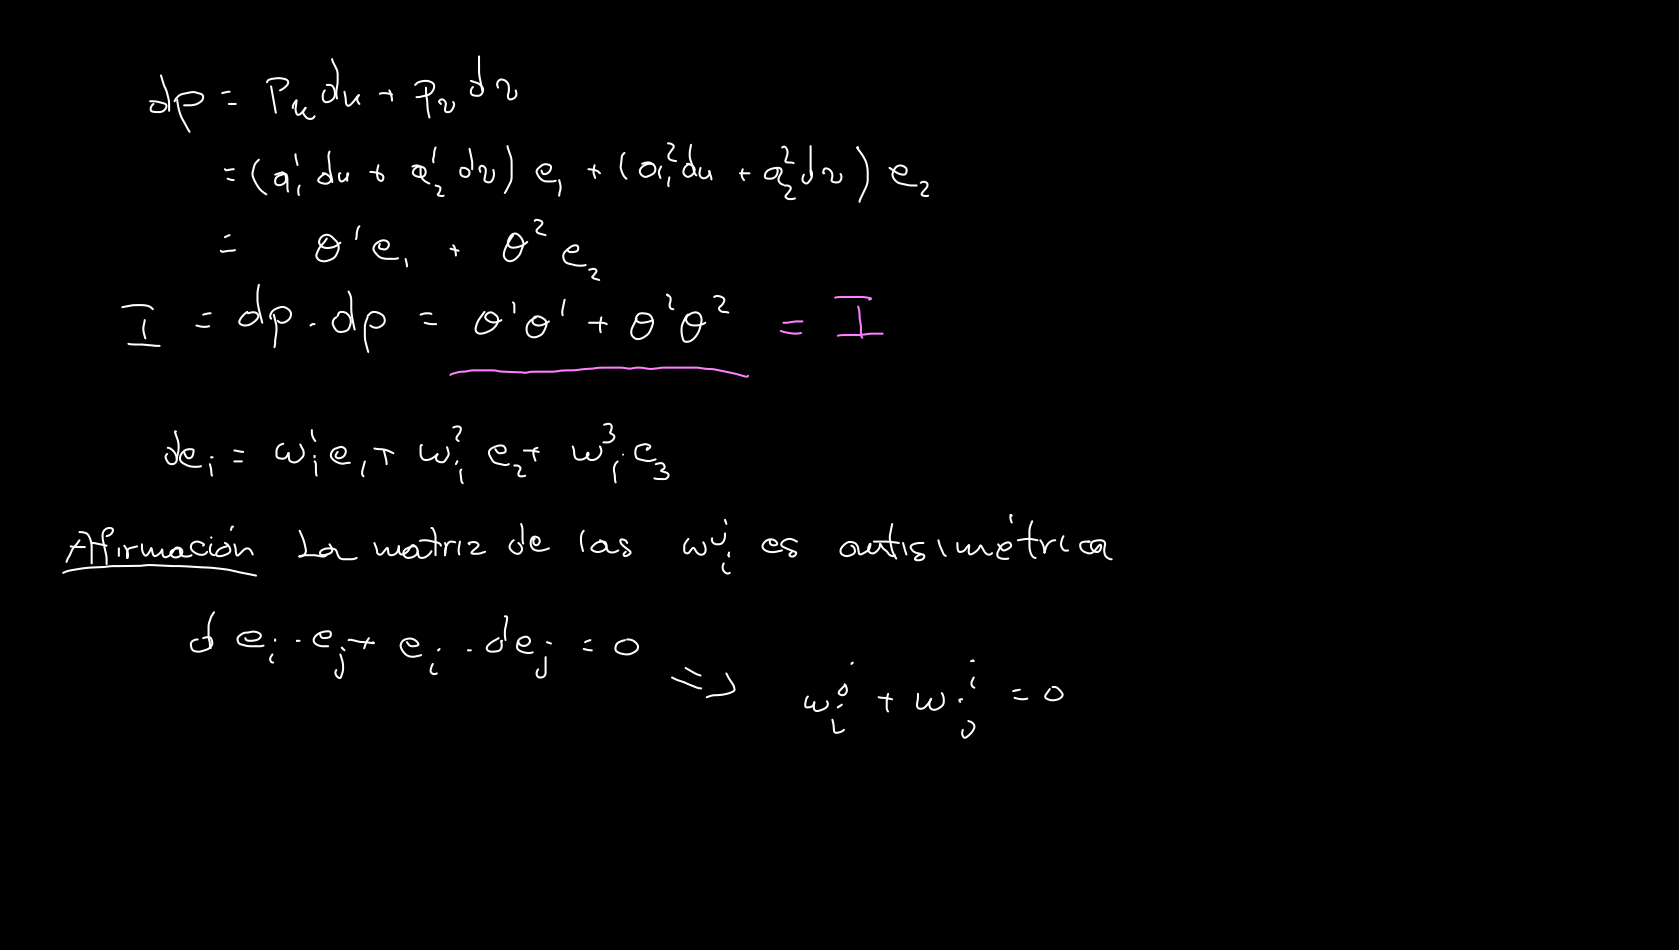 dp = p_u du + p_v dv
= (a^1_1 du + a^1_2 dv) e_1 + (a^2_1 du + a^2_2 dv) e_2
= θ^1 e_1 + θ^2 e_2
I = dp · dp = θ^1 θ^1 + θ^2 θ^2 = I
de_i = ω^1_i e_1 + ω^2_i e_2 + ω^3_i e_3
Afirmación La matriz de las ω^j_i es antisimétrica
de_i · e_j + e_i · de_j = 0
=> ω^j_i + ω^i_j = 0